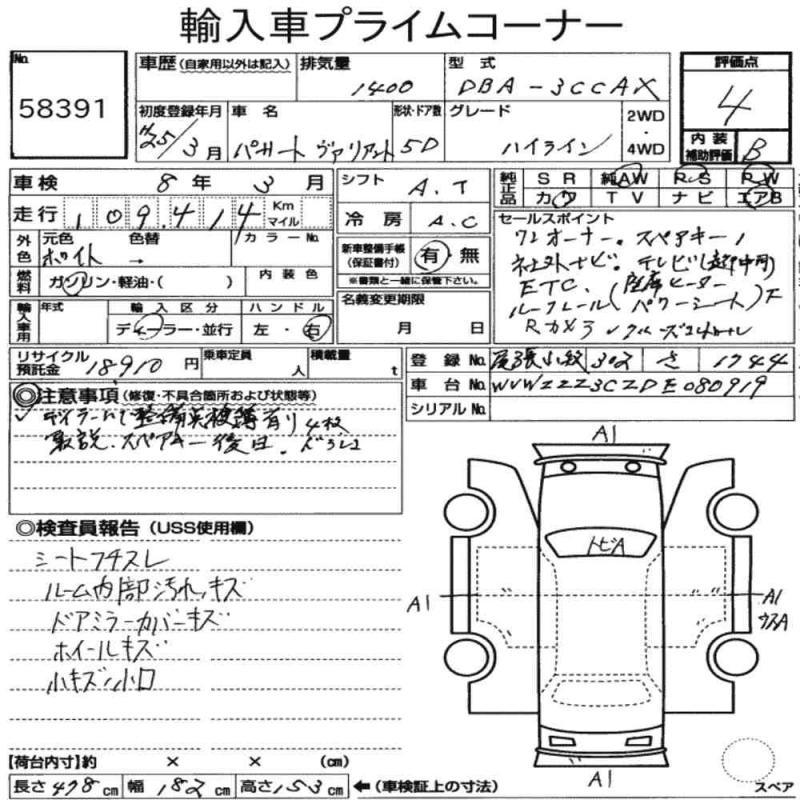 輸入車プライムコーナー
No. 58391
車歴 (自家用以外は記入) 排気量 1400 型式 DBA-3CCAX
評価点 4
初度登録年月 H25/3月 車名 パサート ヴァリアント 形状・ドア数 5D グレード ハイライン 2WD・4WD
内装補助評価 B
車検 8年 3月 シフト A.T
純正品 SR 純AW PS PW
カワ TV ナビ エアB
走行 109,414 Km マイル 冷房 A.C
セールスポイント
外色 元色 ホワイト 色替 → カラーNo. 新車整備手帳(保証書付) 有・無
※書類と一緒に保管下さい。
ワンオーナー。スペアキー1
社外ナビ。テレビ
ETC.(座席ヒーター
ルーフレール(パワーシート)
Rカメラ
燃料 ガソリン・軽油・( ) 内装色
名義変更期限 月 日
輸入車用 年式 輸入区分 ディーラー・並行 ハンドル 左・右
リサイクル預託金 18910円 乗車定員 人 積載量 t
登録No. 尾張小牧 302 さ 1744
車台No. WVWZZZ3CZDE080919
シリアルNo.
◎注意事項 (修復・不具合箇所および状態等)
取説.スペアキー後日.ドラレコ
◎検査員報告 (USS使用欄)
シートフチスレ
ルーム内部汚れ.キズ
ドアミラーカバーキズ
ホイールキズ
小キズ.小凹
A1
トビA
A1
A1
ウスA
A1
スペア
【荷台内寸】約 × × (cm)
長さ 478cm 幅 182cm 高さ 153cm ←(車検証上の寸法)